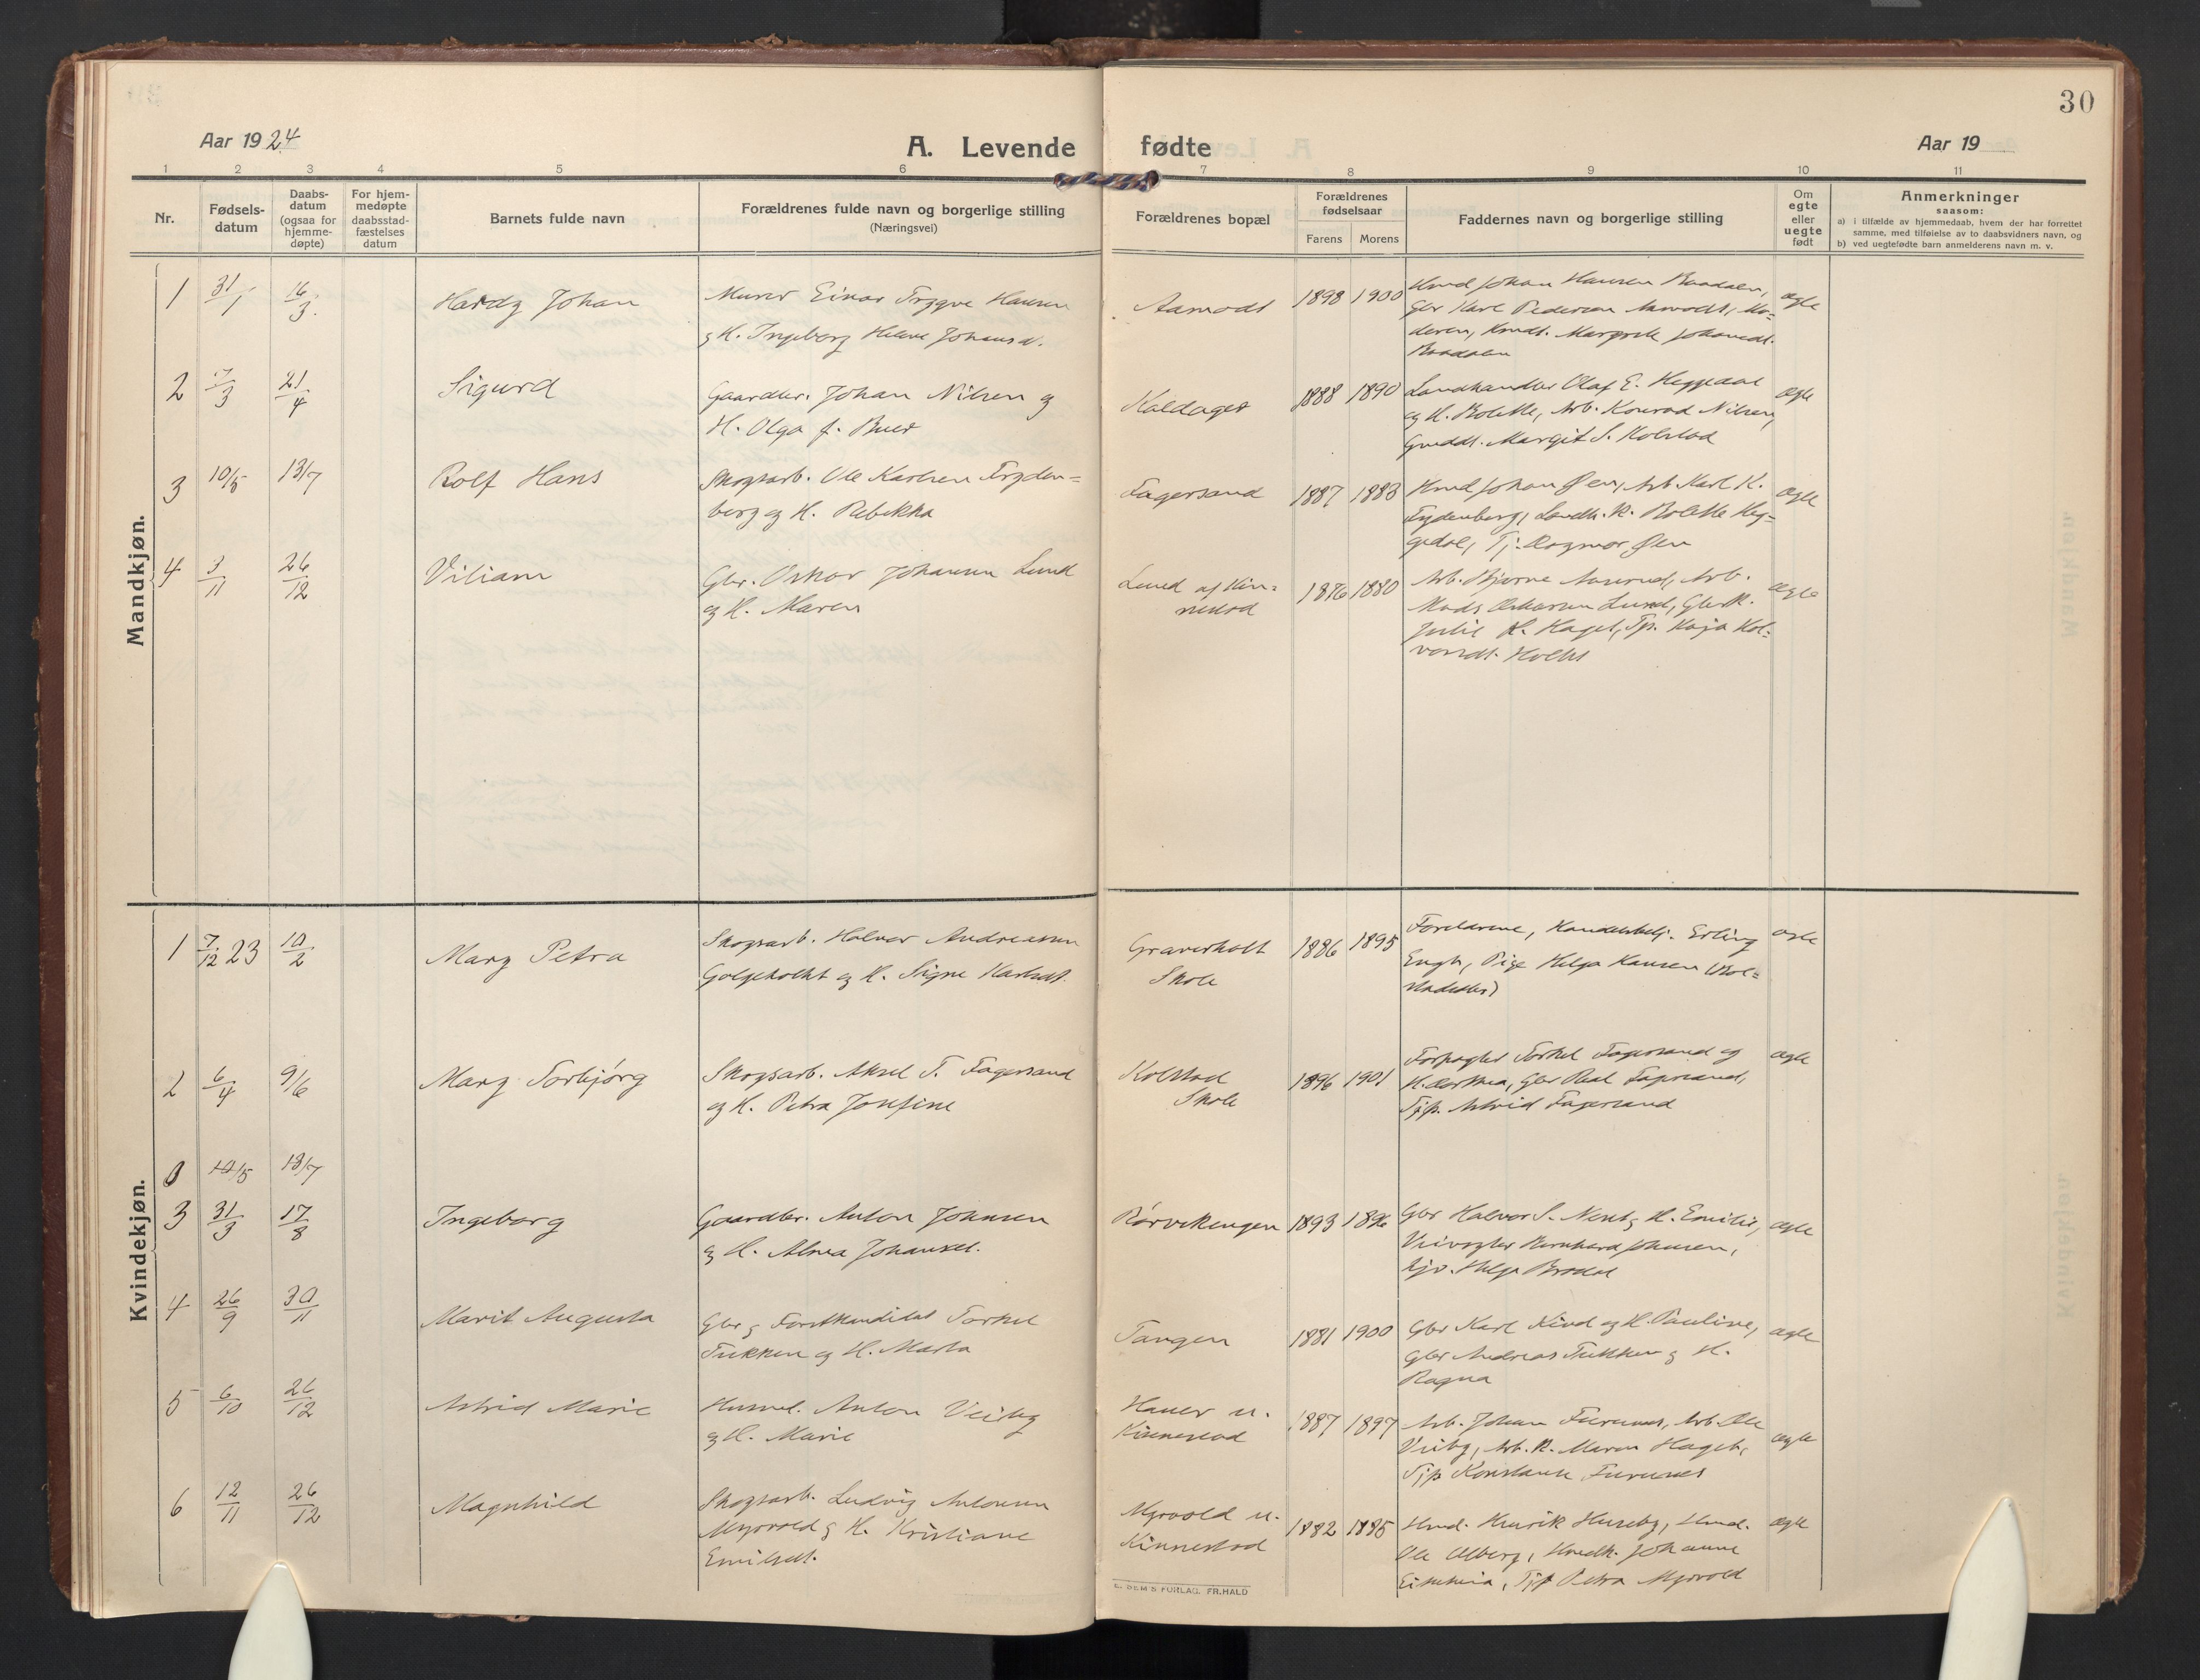 30
Aar 1924
A. Levende fødte
Aar 19
1 2 3 4 5 6 7 8 9 10 11
Nr.
Fødsels-
datum
Daabs-
datum
(ogsaa for
hjemme-
døpte)
For hjem-
medøpte
daabsstad-
fæstelses
datum
Barnets fulde navn
Forældrenes fulde navn og borgerlige stilling
(Næringsvei)
Forældrenes bopæl
Forældrenes
fødselsaar
Farens Morens
Faddernes navn og borgerlige stilling
Om
egte
eller
uegte
født
Anmerkninger
saasom:
a) i tilfælde av hjemmedaab, hvem der har forrettet
samme, med tilføielse av to daabsvidners navn, og
b) ved uegtefødte barn anmelderens navn m. v.
Mandkjøn.
1 31/1 16/3 Hardy Johan
Murer Einar Trygve Hansen
og H. Ingeborg Helene Johansd.
Aamodt 1898 1900
Hmd Johan Hansen Braadalen,
Gbr Karl Pedersen Aamodt, Mo-
deren, Hmdt. Margrete Johansdt.
Braadalen
ægte
2 7/3 21/4 Sigurd
Gaardbr. Johan Nilsen og
H. Olga f. Buer
Holdager 1888 1890
Landhandler Olaf E. Heggedal
og H. Bolette, Arb. Konrad Nilsen,
Grdt. Margit S. Kolstad
ægte
3 10/5 13/7 Rolf Hans
Skogsarb. Ole Karlsen Frydén-
berg og H. Rebekka
Fagersand 1887 1883
Hmd Johan Øen, Arb. Karl K.
Frydenberg, Landh. K. Bolette Heg-
gedal, Tj. Dagmar Øen
ægte
4 3/11 26/12 Viliam
Gbr. Oskar Johansen Lund
og H. Maren
Lund af Kin-
nestad
1876 1880
Arb. Bjarne Aaserud, Arb.
Mads Oskarsen Lund, GbrK.
Julie H. Haget, Tp. Kaja Hal-
vorsdt. Holtet
ægte
Kvindekjøn.
1 7/12 23 10/2 Mary Petra
Skogsarb. Halvor Andreassen
Galgeholtet og H. Signe Karlsdt.
Graverholt
Skole
1886 1895
Forældrene, Handelsbetj. Erling
Engh, Pige Helga Hansen (Kol-
stadeter)
ægte
2 6/4 9/6 Mary Torbjørg
Skogsarb. Aksel T. Fagersand
og H. Petra Josefine
Kolstad
Skole
1896 1901
Forpagter Torkel Fagersand og
H. Dorthea, Gbr Paal Fagersand,
Tjp. Astrid Fagersand
ægte
10/5 13/7
3 31/3 17/8 Ingeborg
Gaardbr. Anton Johnsen
og H. Alma Johansd.
Rørvikengen 1893 1896
Gbr Halvor S. Nes og H. Emilie,
Veivogter Bernhard Johnsen,
Tjp. Helga Brodal
ægte
4 26/9 30/11 Marit Augusta
Gbr og Forstkandidat Torkel
Fukken og H. Marta
Tangen 1881 1900
Gbr Karl Kind og H. Pauline,
Gbr Andreas Fukken og H.
Ragna
ægte
5 6/10 26/12 Astrid Marie
Husm. Anton Veiby
og H. Marie
Hauer u.
Kinnestad
1887 1897
Arb. Johan Furunes, Arb. Ole
Veiby, Arb. K. Maren Haget,
Tjp Konstanse Furunes
ægte
6 12/11 26/12 Magnhild
Skogsarb. Ludvig Antonsen
Myrvold og H. Kristiane
Emilsdt.
Myrvold u.
Kinnestad
1882 1885
Hmd. Henrik Huseby, Hmd.
Ole Alberg, Hmdk. Johanne
Tjp Petra Myrvold
ægte
E. SEM'S FORLAG. FR.HALD